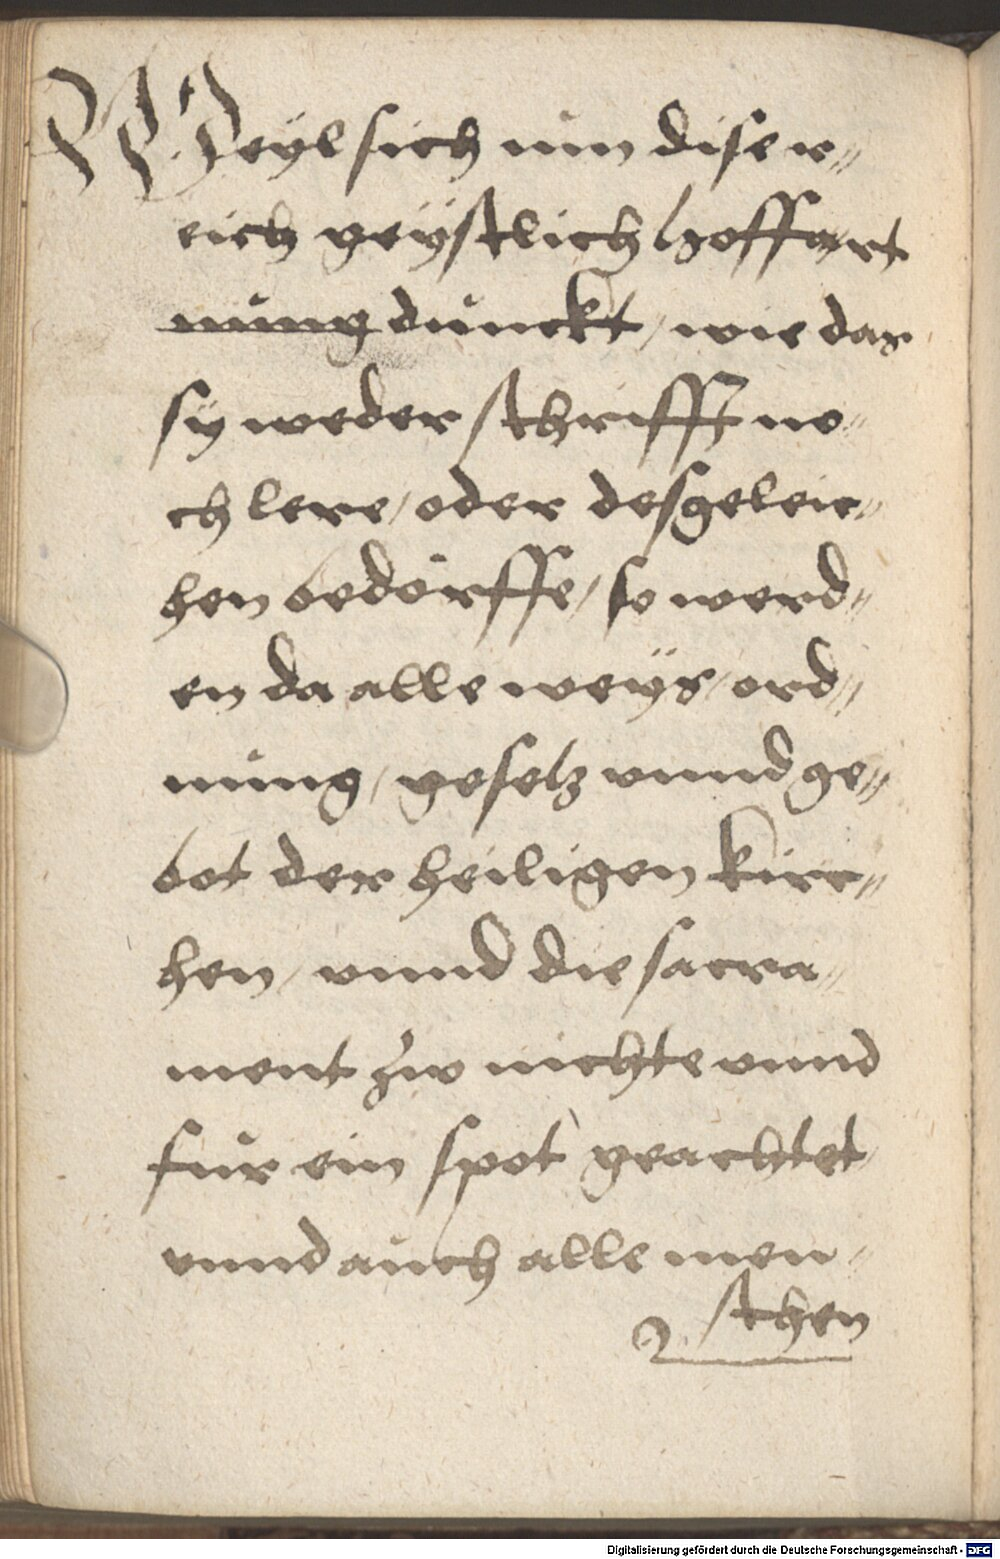 Weyl sich nun diser
reich geÿstlich hoffart
nůng dunckt / wie das
sy weder schrifft no-
ch lere / oder desgeleic-
hen bedörffe / so werd-
en da alle weÿs / ord-
nůng / gesetz vnnd ge-
bot der heiligen kirc-
hen / vnnd die sacra-
ment zw nichte vnnd
für ein spot geachtet /
vnnd aůch alle men-
schen
Digitalisierung gefördert durch die Deutsche Forschungsgemeinschaft - DFG